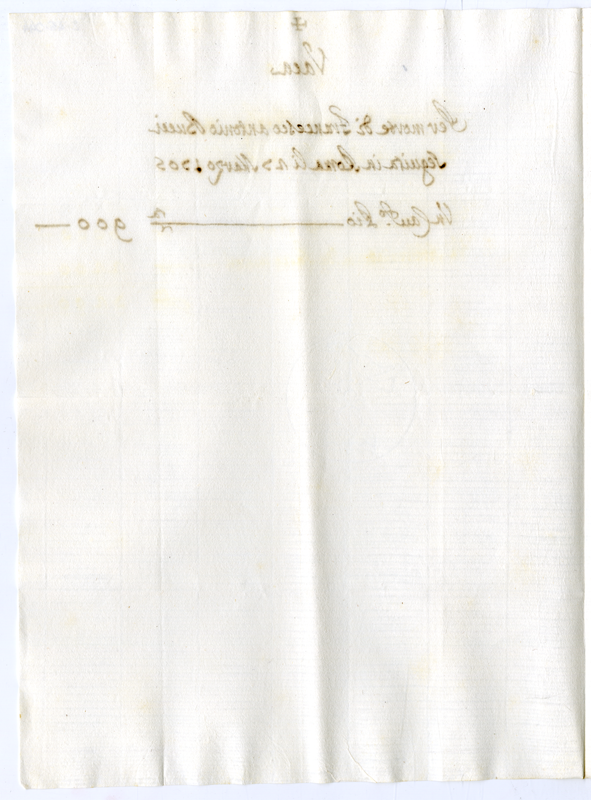 ✠
Vaca
Per morte di Francesco antonio Bucci
seguita in Roma li 27 Marzo 1705
Un Cau.to Pio ——— 900 —